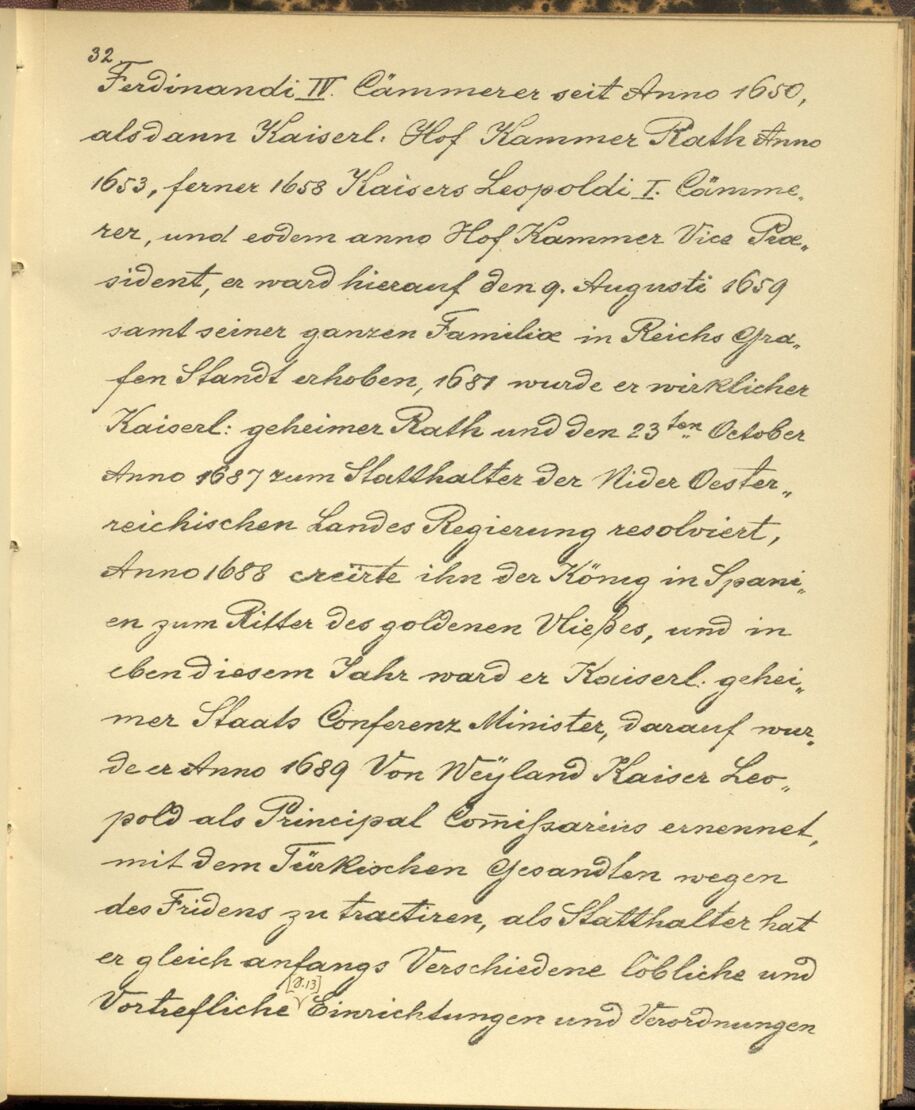 32
Ferdinandi IV. Cämmerer seit Anno 1650,
alsdann Kaiserl: Hof Kammer Rath Anno
1653, ferner 1658 Kaisers Leopoldi I. Cämme„
rer, und eodem anno Hof Kammer Vice Præ„
sident, er ward hierauf den 9. Augusti 1659
samt seiner ganzen Familiæ in Reichs Gra„
fen Standt erhoben, 1681 wurde er wirklicher
Kaiserl: geheimer Rath und den 23ten October
Anno 1687 zum Statthalter der Nider Oester„
reichischen Landes Regierung resolviert,
Anno 1688 creirte ihn der König in Spani„
en zum Ritter des goldenen Vließes, und in
eben diesem Jahr ward er Kaiserl: gehei„
mer Staats Conferenz Minister, darauf wur„
de er Anno 1689 Von Weÿland Kaiser Leo„
pold als Principal Com̄ißarius ernennet,
mit dem Türkischen Gesandten wegen
des Fridens zu tractiren, als Statthalter hat
er gleich anfangs Verschiedene löbliche und
[S. 13]
Vortrefliche Einrichtungen und Verordnungen